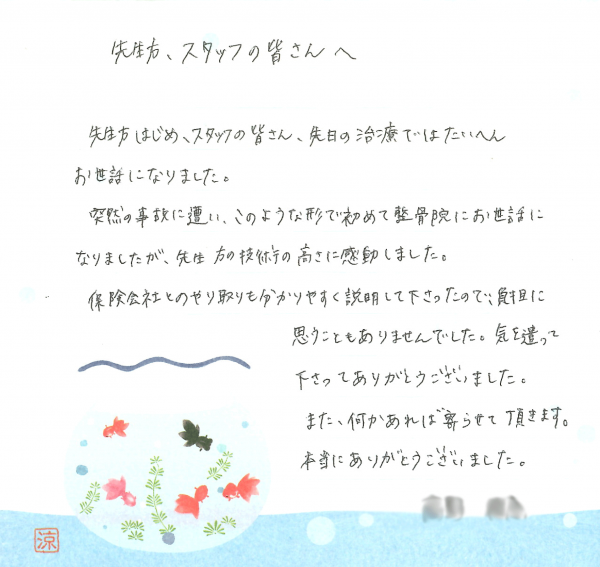 先生方、スタッフの皆さんへ
先生方はじめ、スタッフの皆さん、先日の治療ではたいへん
お世話になりました。
突然の事故に遭い、このような形で初めて整骨院にお世話に
なりましたが、先生方の技術の高さに感動しました。
保険会社とのやり取りも分かりやすく説明して下さったので、負担に
思うこともありませんでした。気を遣って
下さってありがとうございました。
また、何かあれば寄らせて頂きます。
本当にありがとうございました。
涼